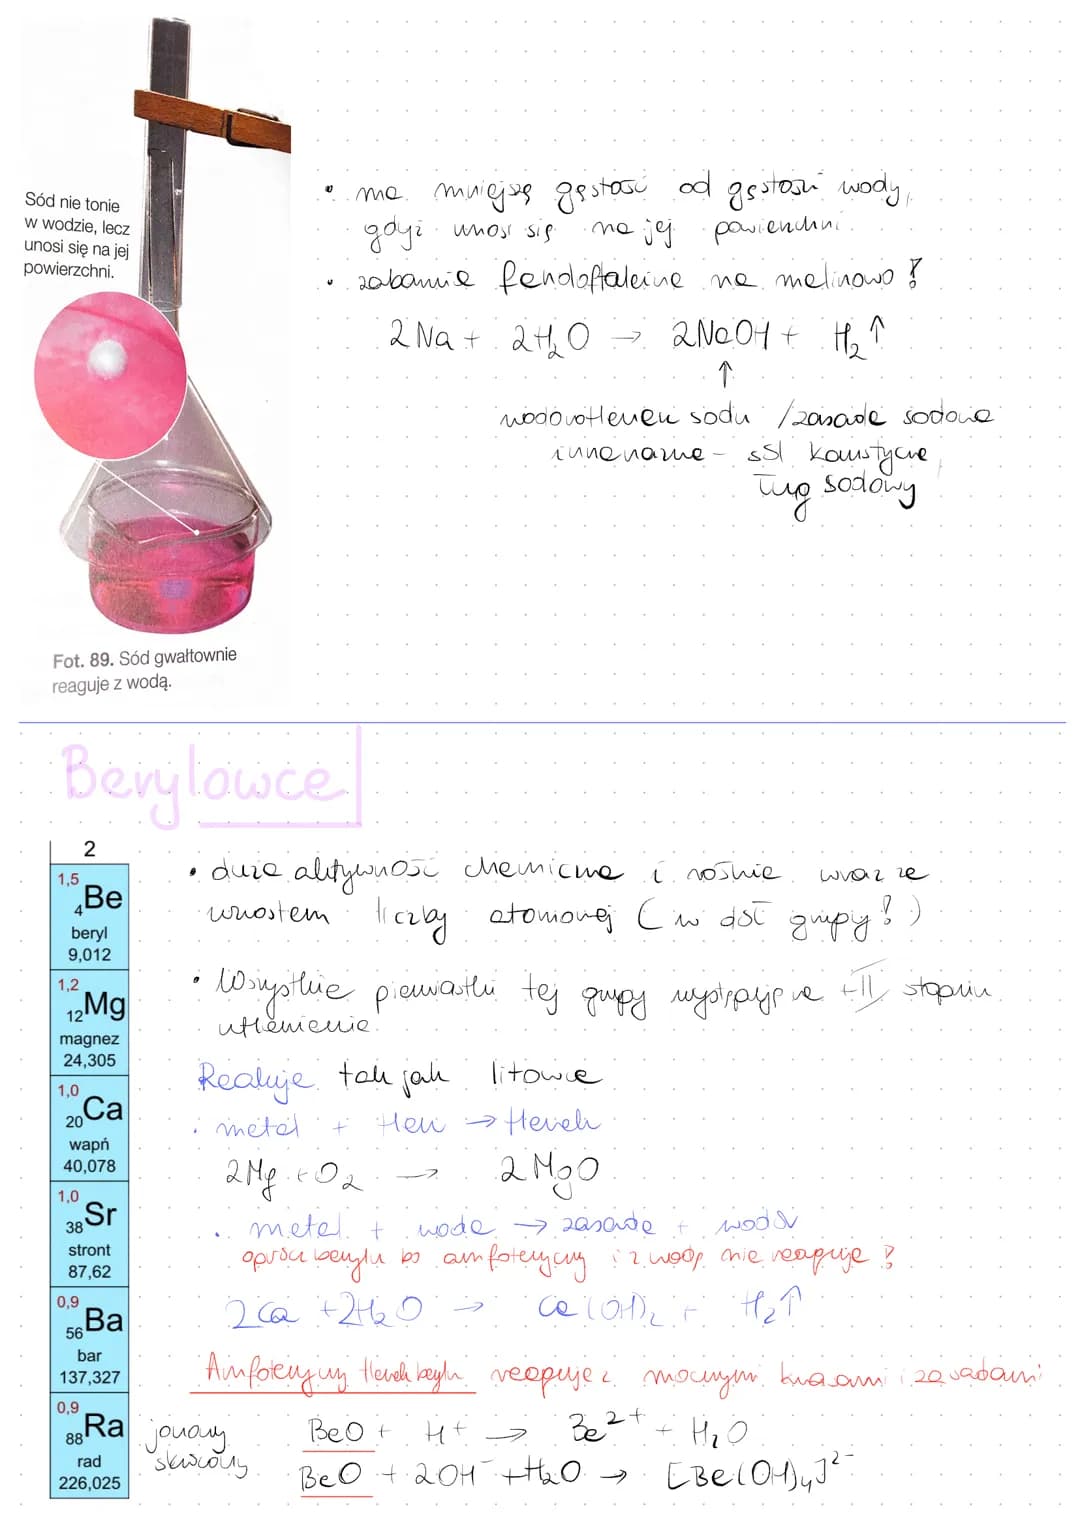 Sód nie tonie
w wodzie, lecz
unosi się na jej
powierzchni.
Fot. 89. Sód gwałtownie
reaguje z wodą.
• ma mniejszą gęstość od gęstości wody,
gdyż unosi się na jej powierzchni
• zabarwie fenoloftaleine na malinowo !
2Na + 2H₂O → 2NaOH + H₂↑
↑
wodorotlenek sodu / zasada sodowa
inne nazwe - sól kaustyczna,
ług sodowy
Berylowce
2
1,5
4Be
beryl
9,012
1,2
12Mg
magnez
24,305
1,0
20Ca
wapń
40,078
1,0
38Sr
stront
87,62
0,9
56Ba
bar
137,327
0,9
88Ra
rad
226,025
• duża aktywność chemiczna i rośnie wraz ze
wzrostem liczby atomowej (w dół grupy!)
• Wszystkie pierwiastki tej grupy występują na +II stopniu
utlenienia
Reaguje tak jak litowce
• metal + tlen → tlenek
2Mg + O₂ → 2MgO
• metal + woda → zasada + wodór
oprócz berylu bo amfoteryczny i z wodą nie reaguje !
2Ca + 2H₂O → Ca(OH)₂ + H₂↑
Amfoteryczny tlenek berylu reaguje z mocnymi kwasami i zasadami
jonowy
skrócony
BeO + H⁺ → Be²⁺ + H₂O
BeO + 2OH⁻ + H₂O → [Be(OH)₄]²⁻